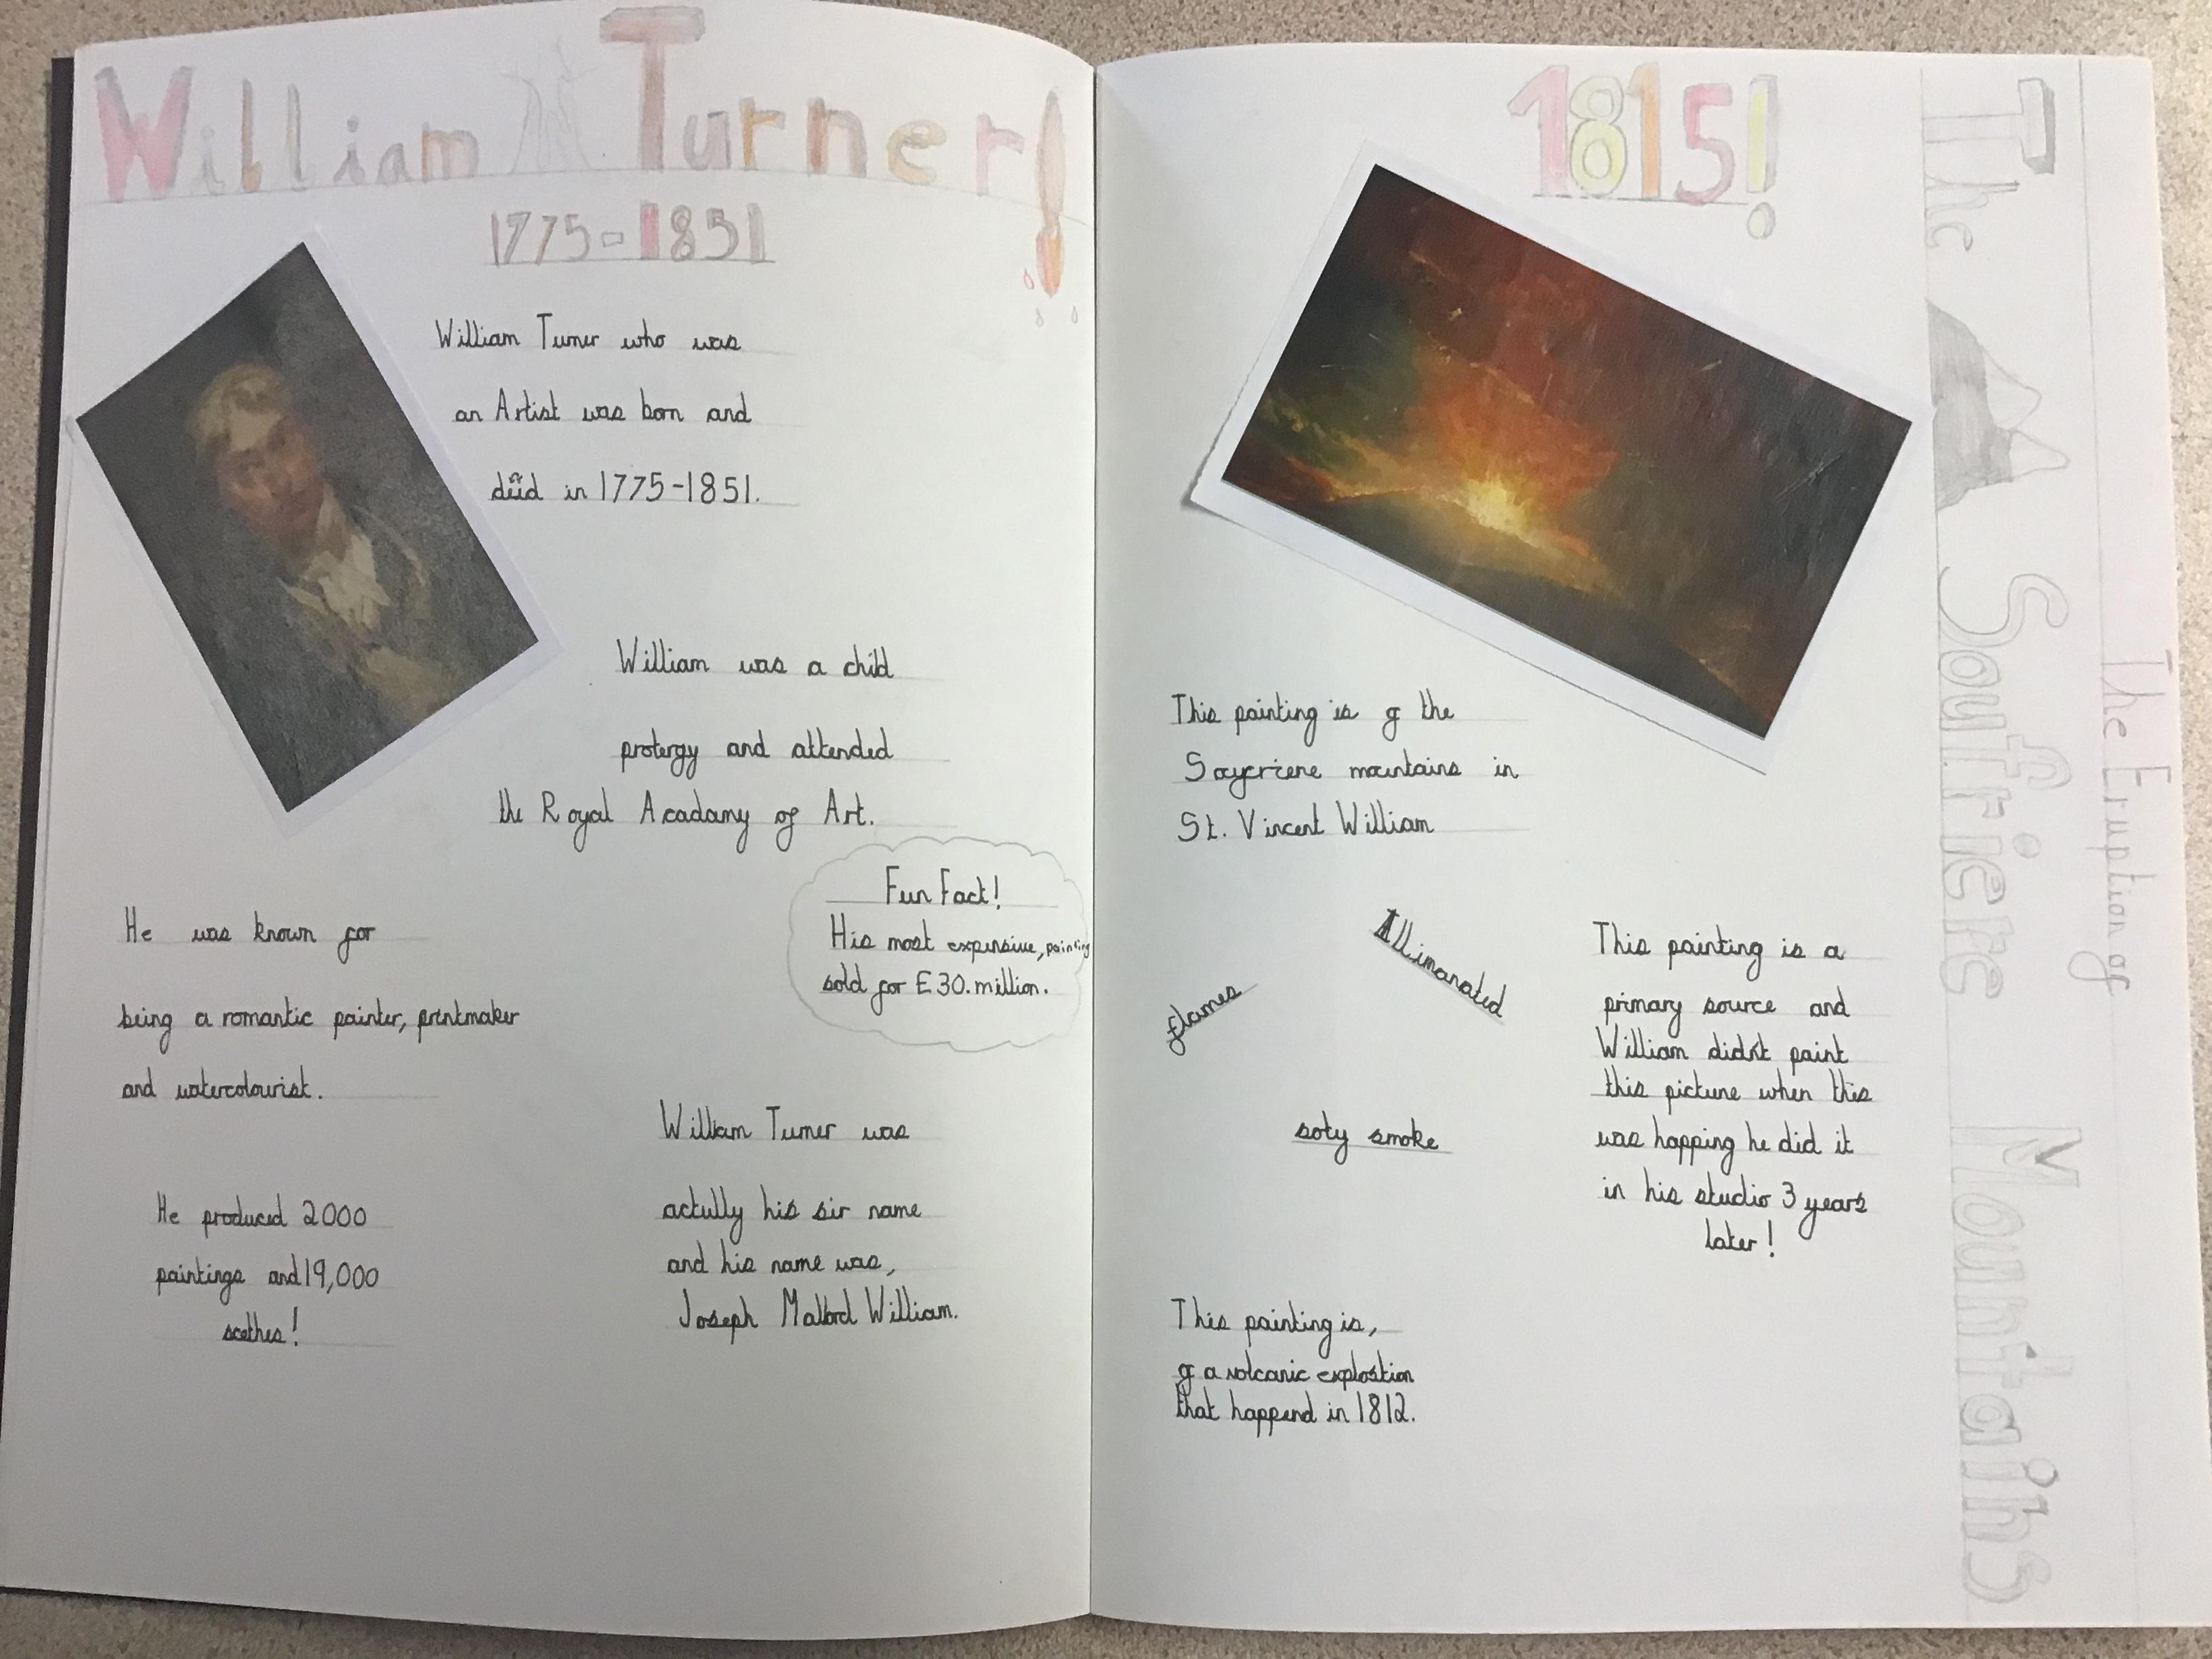 William Turner!
1775-1851
William Turner who was
an Artist was born and
died in 1775-1851.
William was a child
protergy and attended
the Royal Acadamy of Art.
Fun Fact!
His most expensive, painting
sold for £30.million.
He was known for
being a romantic painter, printmaker
and watercolourist.
William Turner was
actully his sir name
and his name was,
Joseph Mallord William.
He produced 2000
paintings and 19,000
scethes!
1815!
This painting is of the
mountains in
St. Vincent William
flames
Allimanated
soty smoke
This painting is a
primary source and
William didn't paint
this picture when this
was happing he did it
in his studio 3 years
later!
This painting is,
of a volcanic explostion
that happend in 1812.
The Eruption of
The Soufriere Mountains